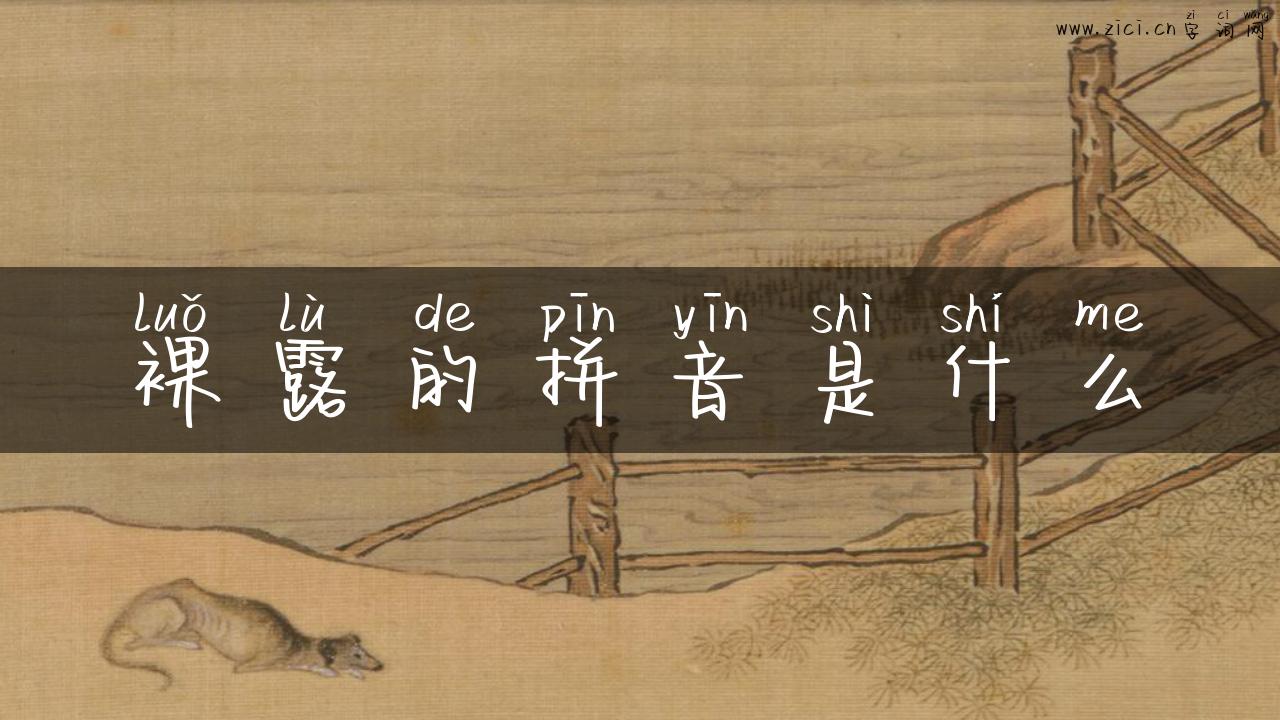 zi ci wang
www.zici.cn 字词网
luǒ lù de pīn yīn shì shí me
裸露的拼音是什么